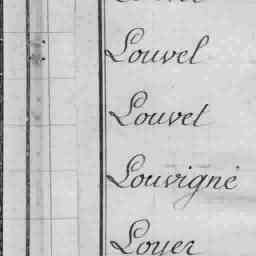 Louvel
Louvet
Louvigné
Loyer